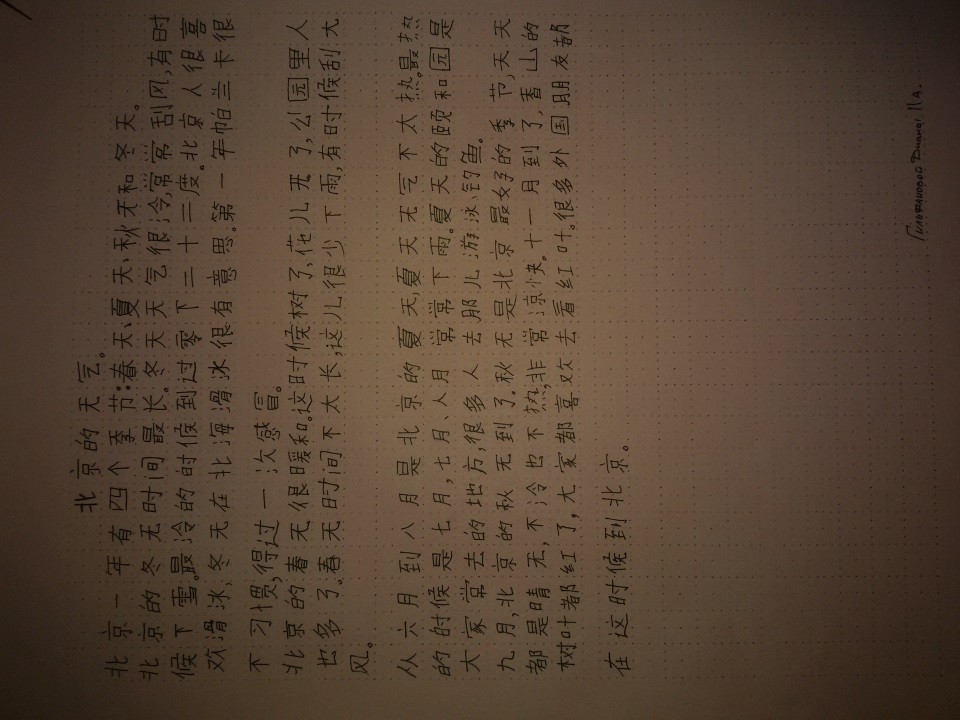 北京的天气。
北京一年有四个季节:春天、夏天、秋天和冬天。
北京的冬天时间最长。冬天天气很冷,常常刮风,有时
候下雪。最冷的时候到过零下二十三度。北京人很喜
欢滑冰,冬天在北海滑冰很有意思。第一年帕兰卡很
不习惯,得过一次感冒。
北京的春天很暖和。这时候树了,花儿开了,公园里人
也多了。春天时间不太长,这儿很少下雨,有时候刮大
风。
从六月到八月是北京的夏天,夏天天气不太热。最热
的时候是七月,七月、人月常常下雨。夏天的颐和园是
大家常去的地方,很多人去那儿游泳、钓鱼。
九月,北京的秋天到了。秋天是北京最好的季节,天天
都是晴天,不冷也不热,非常凉快。十一月到了,香山的
树叶都红了,大家都喜欢去看红叶。很多外国朋友都
在这时候到北京。
Дианы IIA.